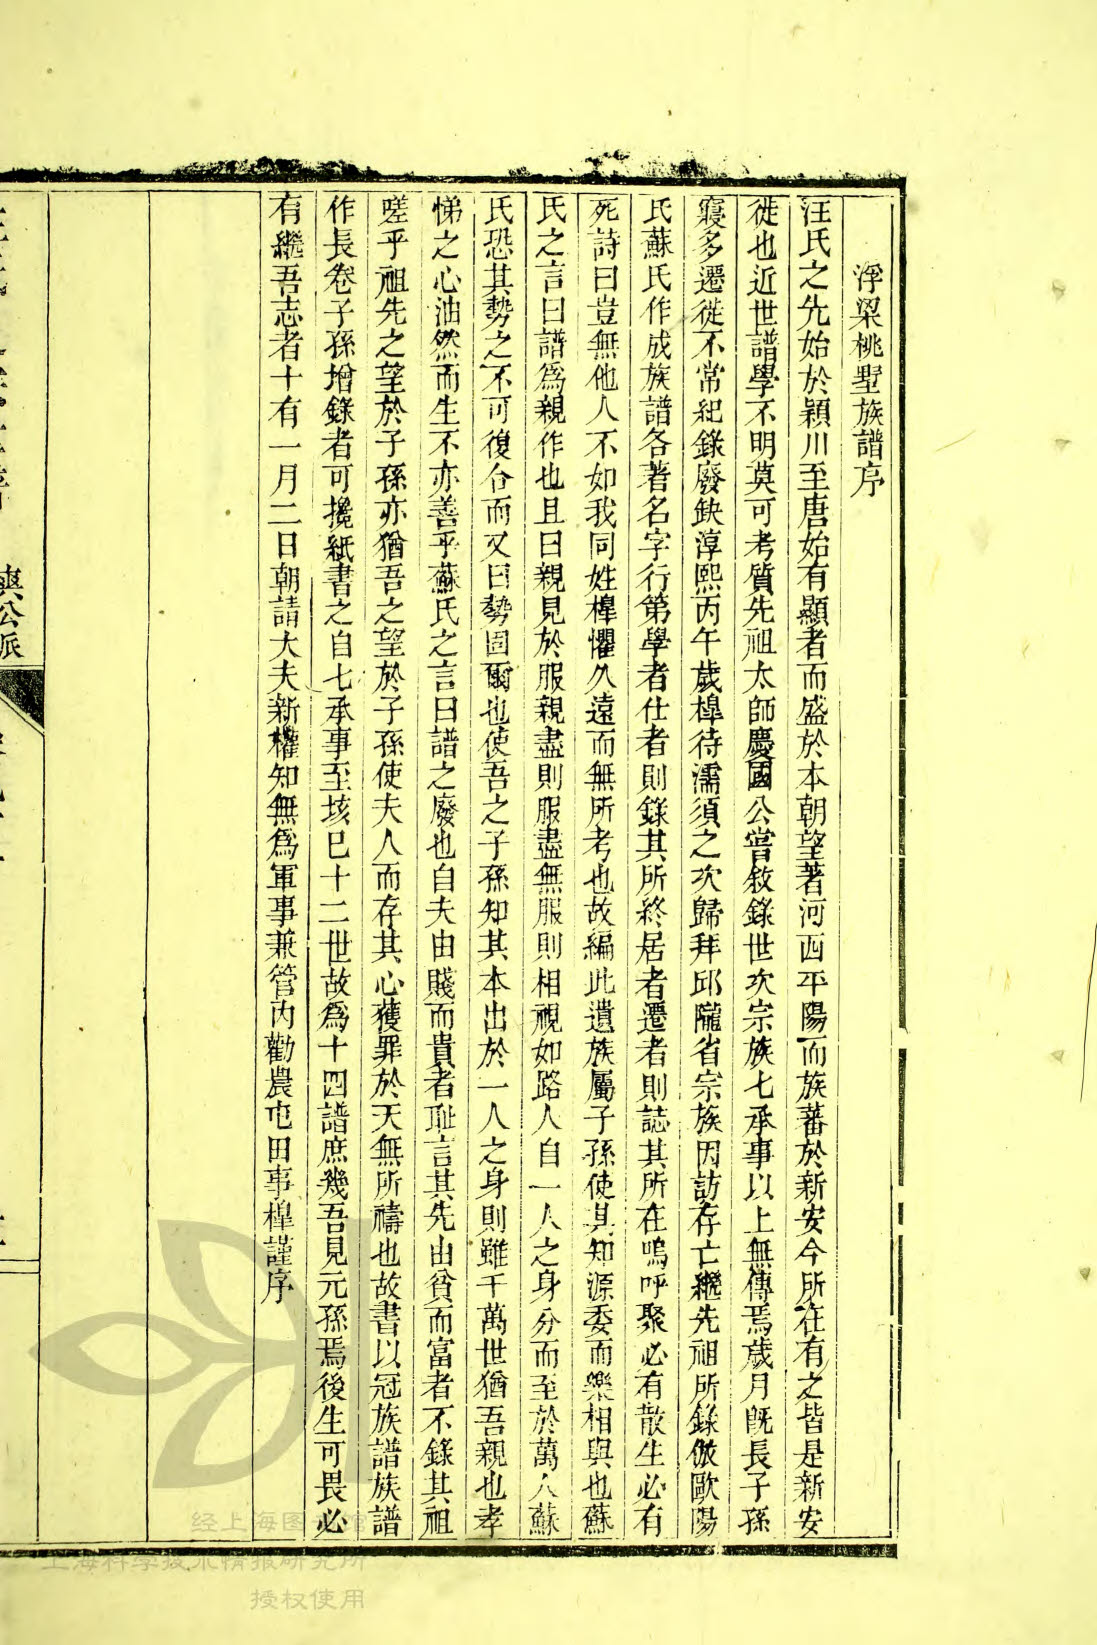 浮梁桃墅族譜序
汪氏之先始於潁川至唐始有顯者而盛於本朝望著河西平陽而族蕃於新安今所在有之皆是新安
徙也近世譜學不明莫可考質先祖太師慶國公嘗敘錄世次宗族七承事以上無傳焉歲月旣長子孫
寖多遷徙不常紀錄廢缺淳熙丙午歲㮙待濡須之次歸拜邱隴省宗族因訪存亡繼先祖所錄倣歐陽
氏蘇氏作成族譜各著名字行第學者仕者則錄其所終居者遷者則誌其所在嗚呼聚必有散生必有
死詩曰豈無他人不如我同姓㮙懼久遠而無所考也故編此遺族屬子孫使其知源委而樂相與也蘇
氏之言曰譜爲親作也且曰親見於服親盡則服盡無服則相視如路人自一人之身分而至於萬人蘇
氏恐其勢之不可復合而又曰勢固爾也使吾之子孫知其本出於一人之身則雖千萬世猶吾親也孝
悌之心油然而生不亦善乎蘇氏之言曰譜之廢也自夫由賤而貴者耻言其先由貧而富者不錄其祖
嗟乎祖先之望於子孫亦猶吾之望於子孫使夫人而存其心獲罪於天無所禱也故書以冠族譜族譜
作長卷子孫增錄者可攙紙書之自七承事至垓巳十二世故爲十四譜庶幾吾見元孫焉後生可畏必
有繼吾志者十有一月二日朝請大夫新權知無爲軍事兼管內勸農屯田事㮙謹序
奭公派
经上海图书馆
上海科学技术情报研究所
授权使用